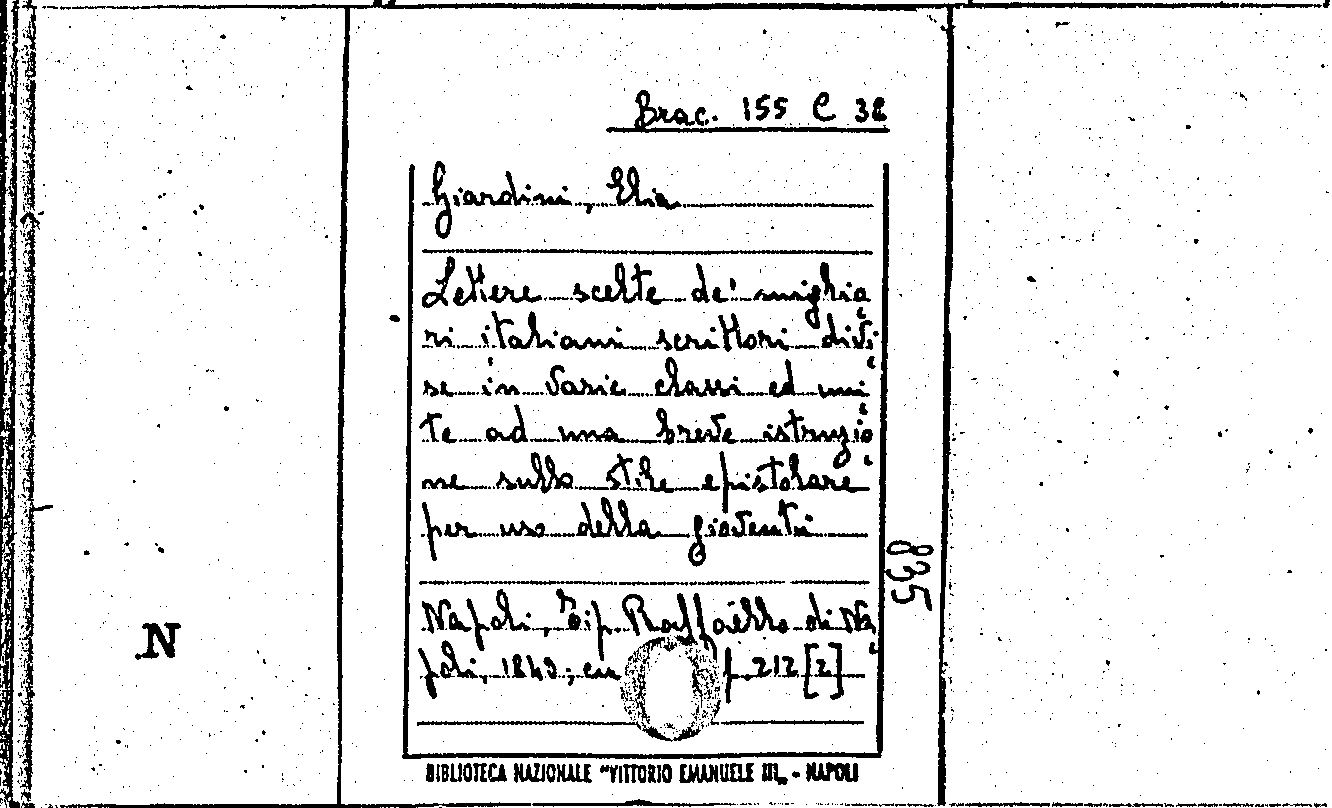 Brac. 155 C 38
Giardini, Elia
Lettere scelte de' miglia
ri italiani scrittori divi
se in varie classi ed uni
te ad una breve istruzio
ne sullo stile epistolare
per uso della gioventù
835
Napoli, Tip. Raffaello di Na
poli, 1840; cm p. 212 [2]
N
BIBLIOTECA NAZIONALE "VITTORIO EMANUELE III„ - NAPOLI